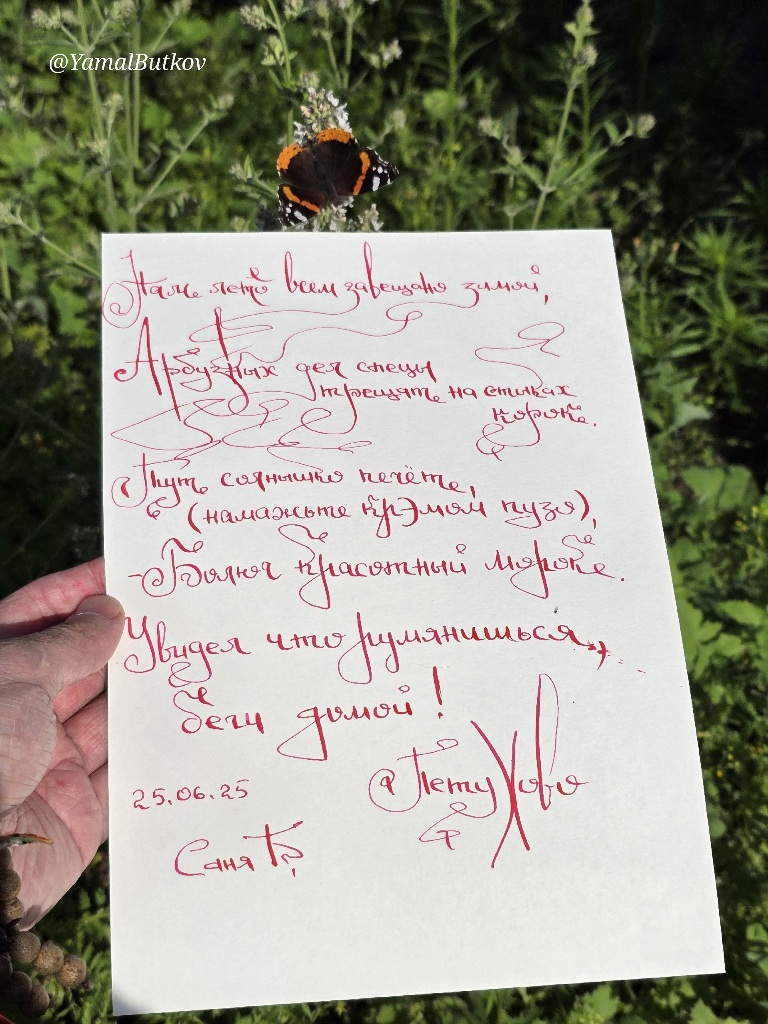 @YamalButkov
Намъ лето всем завещано зимой,
Арбузных дел спецы
трещать на стыках
корокъ.
Тутъ солнышко печётъ,
(намажьте крэмом пузо),
- Белюч красотный морокъ.
Увидел что румянишься,
беги домой!
25.06.25
ПетуХово
Саня Б,